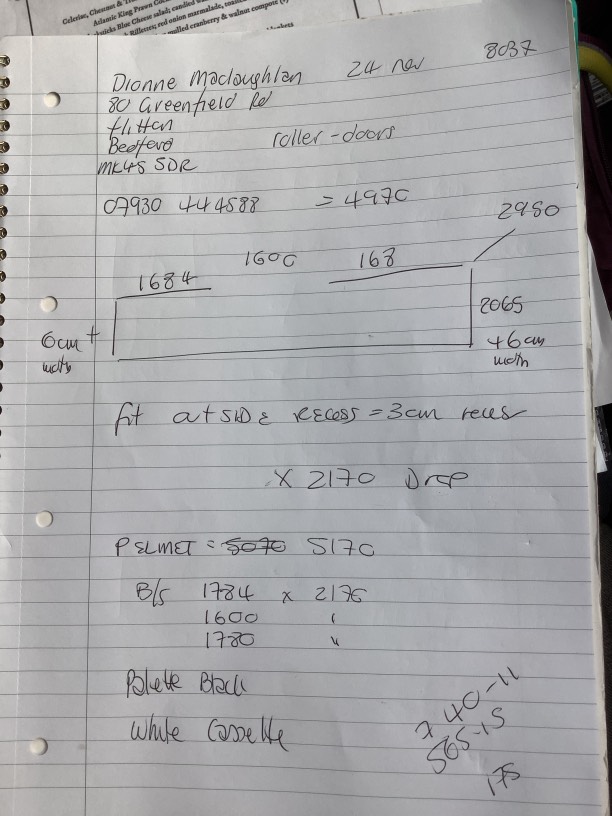 Celeriac, Chestnut & T
Atlantic King Prawn Co
Blue Cheese salad, candied
Rillettes; red onion marmalade, toaste
cranberry & walnut compote (v)
Dionne Macloughlan 24 nov 8037
80 Greenfield Rd
flitton
Bedford roller-doors
MK45 5DR
07930 444588 = 4970
2980
1684 1600 168
2065
6cm + width
+6cm width
fit at SIDE RECESS = 3cm reces
X 2170 Drop
PELMET = 5070 5170
B/s 1784 x 2170
1600 "
1780 "
Palette Black
White Cassette
x 40-11
565-15
175